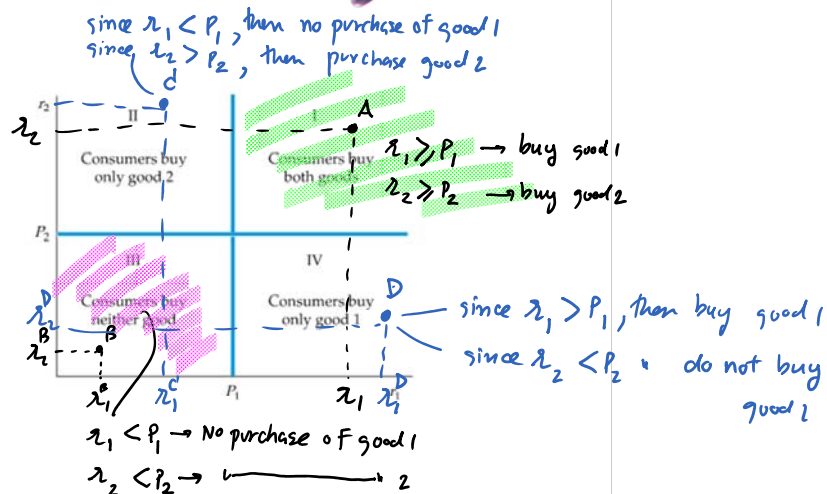 since r₁ < P₁, then no purchase of good 1
since r₂ > P₂, then purchase good 2
C
r₂
II
I
A
r₂
Consumers buy
only good 2
Consumers buy
both goods
r₁ ⩾ P₁ → buy good 1
r₂ ⩾ P₂ → buy good 2
P₂
III
IV
Consumers buy
neither good
Consumers buy
only good 1
D
r₂ᴰ
r₂ᴮ
B
since r₁ > P₁, then buy good 1
since r₂ < P₂ " do not buy
good 2
r₁ᴮ
r₁ᶜ
P₁
r₁
r₁ᴰ
r₁
r₁ < P₁ → No purchase of good 1
r₂ < P₂ → " " 2